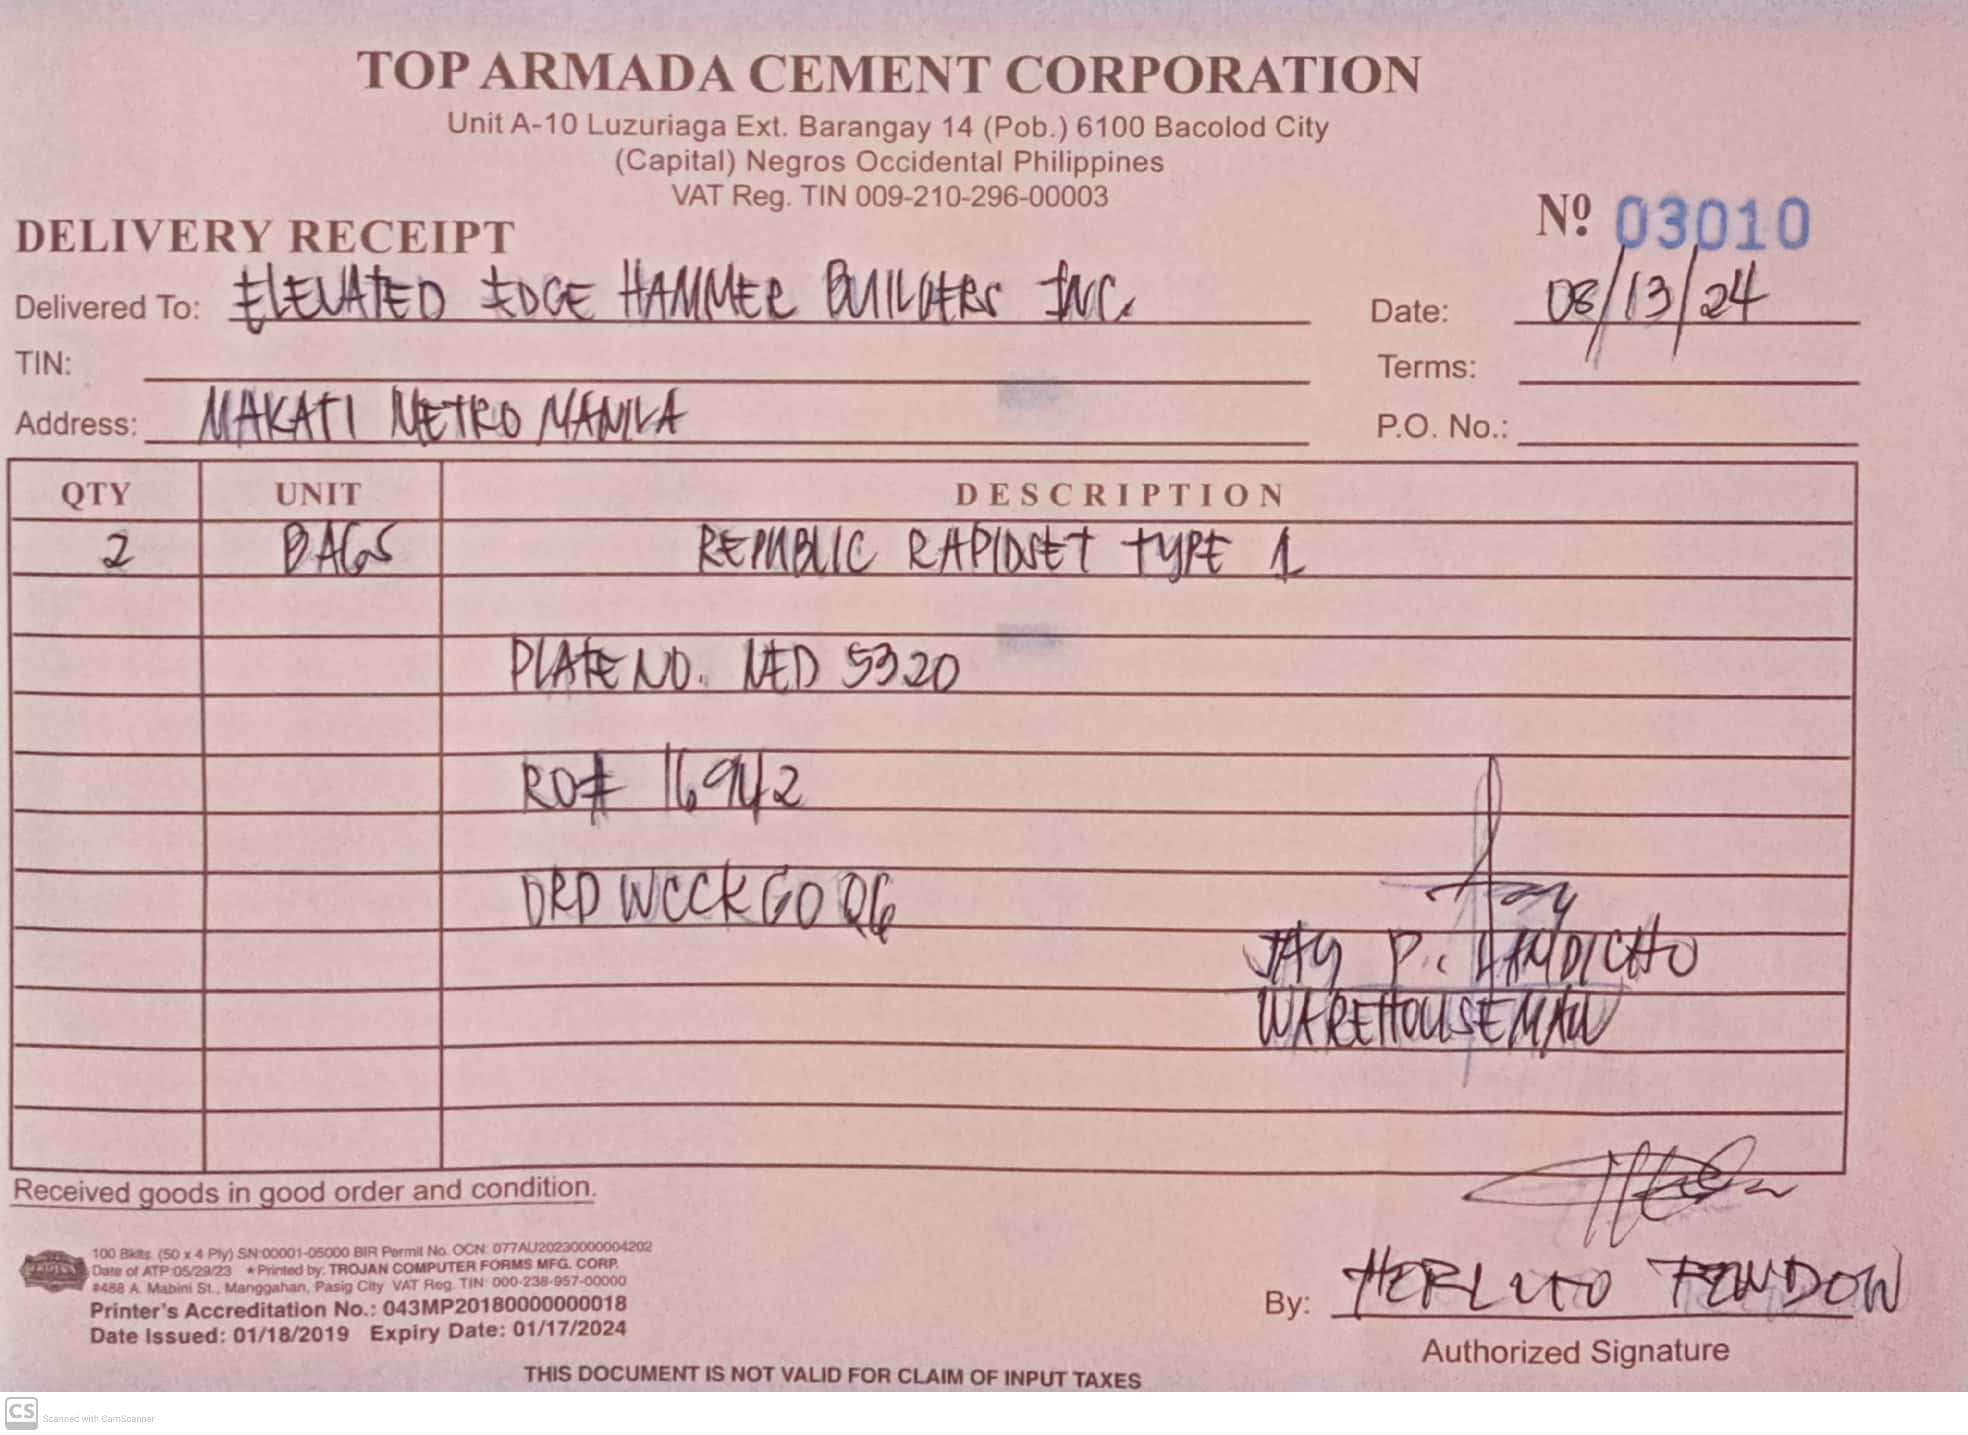 TOP ARMADA CEMENT CORPORATION
Unit A-10 Luzuriaga Ext. Barangay 14 (Pob.) 6100 Bacolod City
(Capital) Negros Occidental Philippines
VAT Reg. TIN 009-210-296-00003
Nº 03010
DELIVERY RECEIPT
Delivered To: ELEVATED EDGE HAMMER BUILDERS INC. Date: 08/13/24
TIN: Terms:
Address: MAKATI METRO MANILA P.O. No.:
QTY UNIT DESCRIPTION
2 BAGS REPUBLIC RAPIDSET TYPE 1
PLATE NO. NED 5320
RO# 16942
DRD WCCK GO Q6
JAY P. LANDICHO
WAREHOUSEMAN
Received goods in good order and condition.
100 Bklts. (50 x 4 Ply) SN:00001-05000 BIR Permit No. OCN: 077AU20230000004202
Date of ATP:05/29/23 ★Printed by: TROJAN COMPUTER FORMS MFG. CORP.
#488 A. Mabini St., Manggahan, Pasig City VAT Reg. TIN: 000-238-957-00000
Printer's Accreditation No.: 043MP20180000000018
Date Issued: 01/18/2019 Expiry Date: 01/17/2024
By: HERLITO
Authorized Signature
THIS DOCUMENT IS NOT VALID FOR CLAIM OF INPUT TAXES
CS Scanned with CamScanner